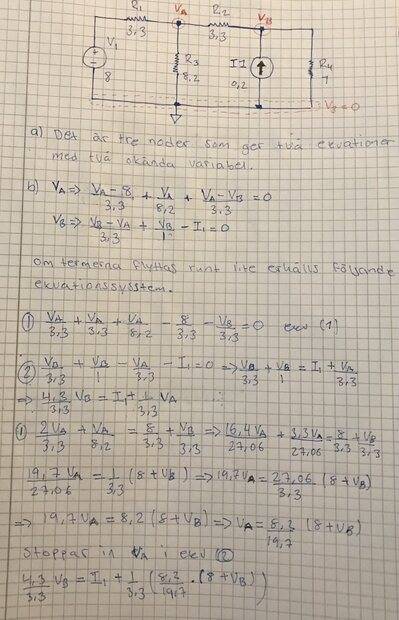 R1 VA R2 VB
3,3 3,3
V1 R3 I1 R4
8 8,2 0,2 1
V3=0
a) Det är tre noder som ger två ekvationer
med två okända variabel.
b) VA => (VA - 8)/3,3 + VA/8,2 + (VA - VB)/3,3 = 0
VB => (VB - VA)/3,3 + VB/1 - I1 = 0
om termerna flyttas runt lite erhålls följande
ekvationssysstem.
① VA/3,3 + VA/3,3 + VA/8,2 - 8/3,3 - VB/3,3 = 0 ekv (1)
② VB/3,3 + VB/1 - VA/3,3 - I1 = 0 => VB/3,3 + VB/1 = I1 + VA/3,3
=> 4,3/3,3 VB = I1 + 1/3,3 VA
① 2VA/3,3 + VA/8,2 = 8/3,3 + VB/3,3 => 16,4VA/27,06 + 3,3VA/27,06 = 8/3,3 + VB/3,3
19,7VA/27,06 = 1/3,3 (8+VB) => 19,7VA = 27,06/3,3 (8+VB)
=> 19,7VA = 8,2 (8+VB) => VA = 8,2/19,7 (8+VB)
Stoppar in VA i ekv ②
4,3/3,3 VB = I1 + 1/3,3 (8,2/19,7 · (8+VB))